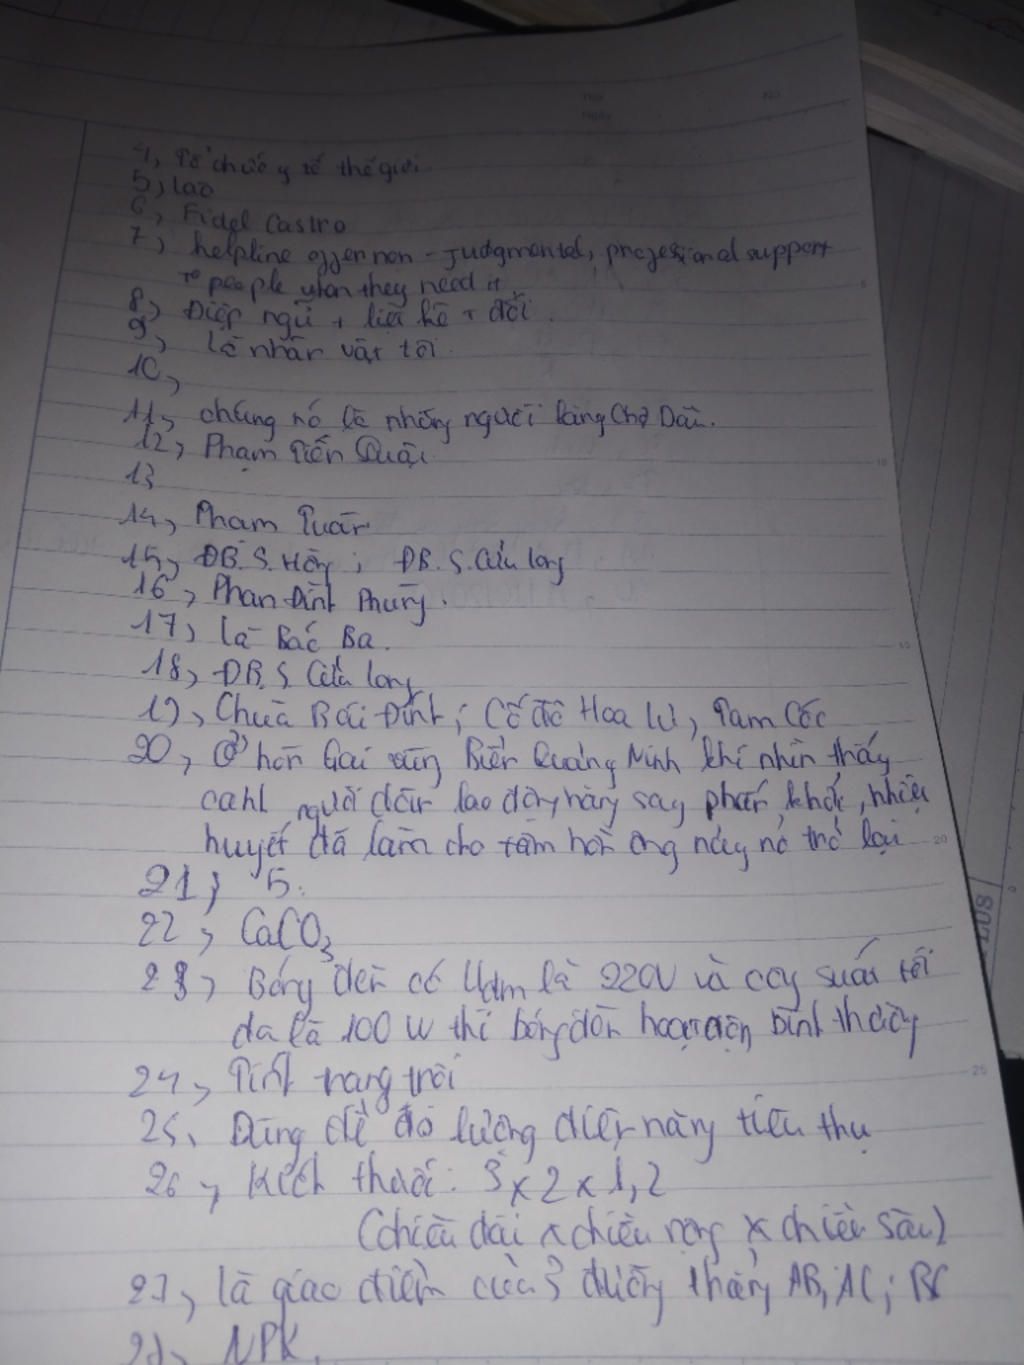 4, Tổ chức y tế thế giới
5, Lao
6, Fidel Castro
7, helpline offer non-Judgmental, professional support
to people when they need it.
8, Điệp ngữ + liệt kê + đối.
9, Là nhân vật tôi.
10,
11, chúng nó là những người làng Chợ Dầu.
12, Phạm Tiến Duật
13
14, Phạm Tuân
15, ĐB. S. Hồng ; ĐB. S. Cửu long
16, Phan Đình Phùng.
17, là Bác Ba.
18, ĐB. S Cửu long
19, Chùa Bái Đính; Cố đô Hoa Lư, Tam Cốc
20, Ở hòn Gai vùng Biển Quảng Ninh khi nhìn thấy
cahl người dân lao động hăng say phấn khởi, nhiệt
huyết đã làm cho tâm hồn ông nảy nở trở lại
21, 5.
22, CaCO3
23, Bóng đèn có Uđm là 220V và côg suất tối
đa là 100 W thì bóng đèn hoạt động bình thường
24, Tỉnh trang trời
25, Dùng để đo lường điện năng tiêu thụ
26, Kích thước: 3 x 2 x 1,2
(chiều dài x chiều rộng x chiều sâu)
27, là giao điểm của 3 đường thẳng AB, AC; BC
NPK.